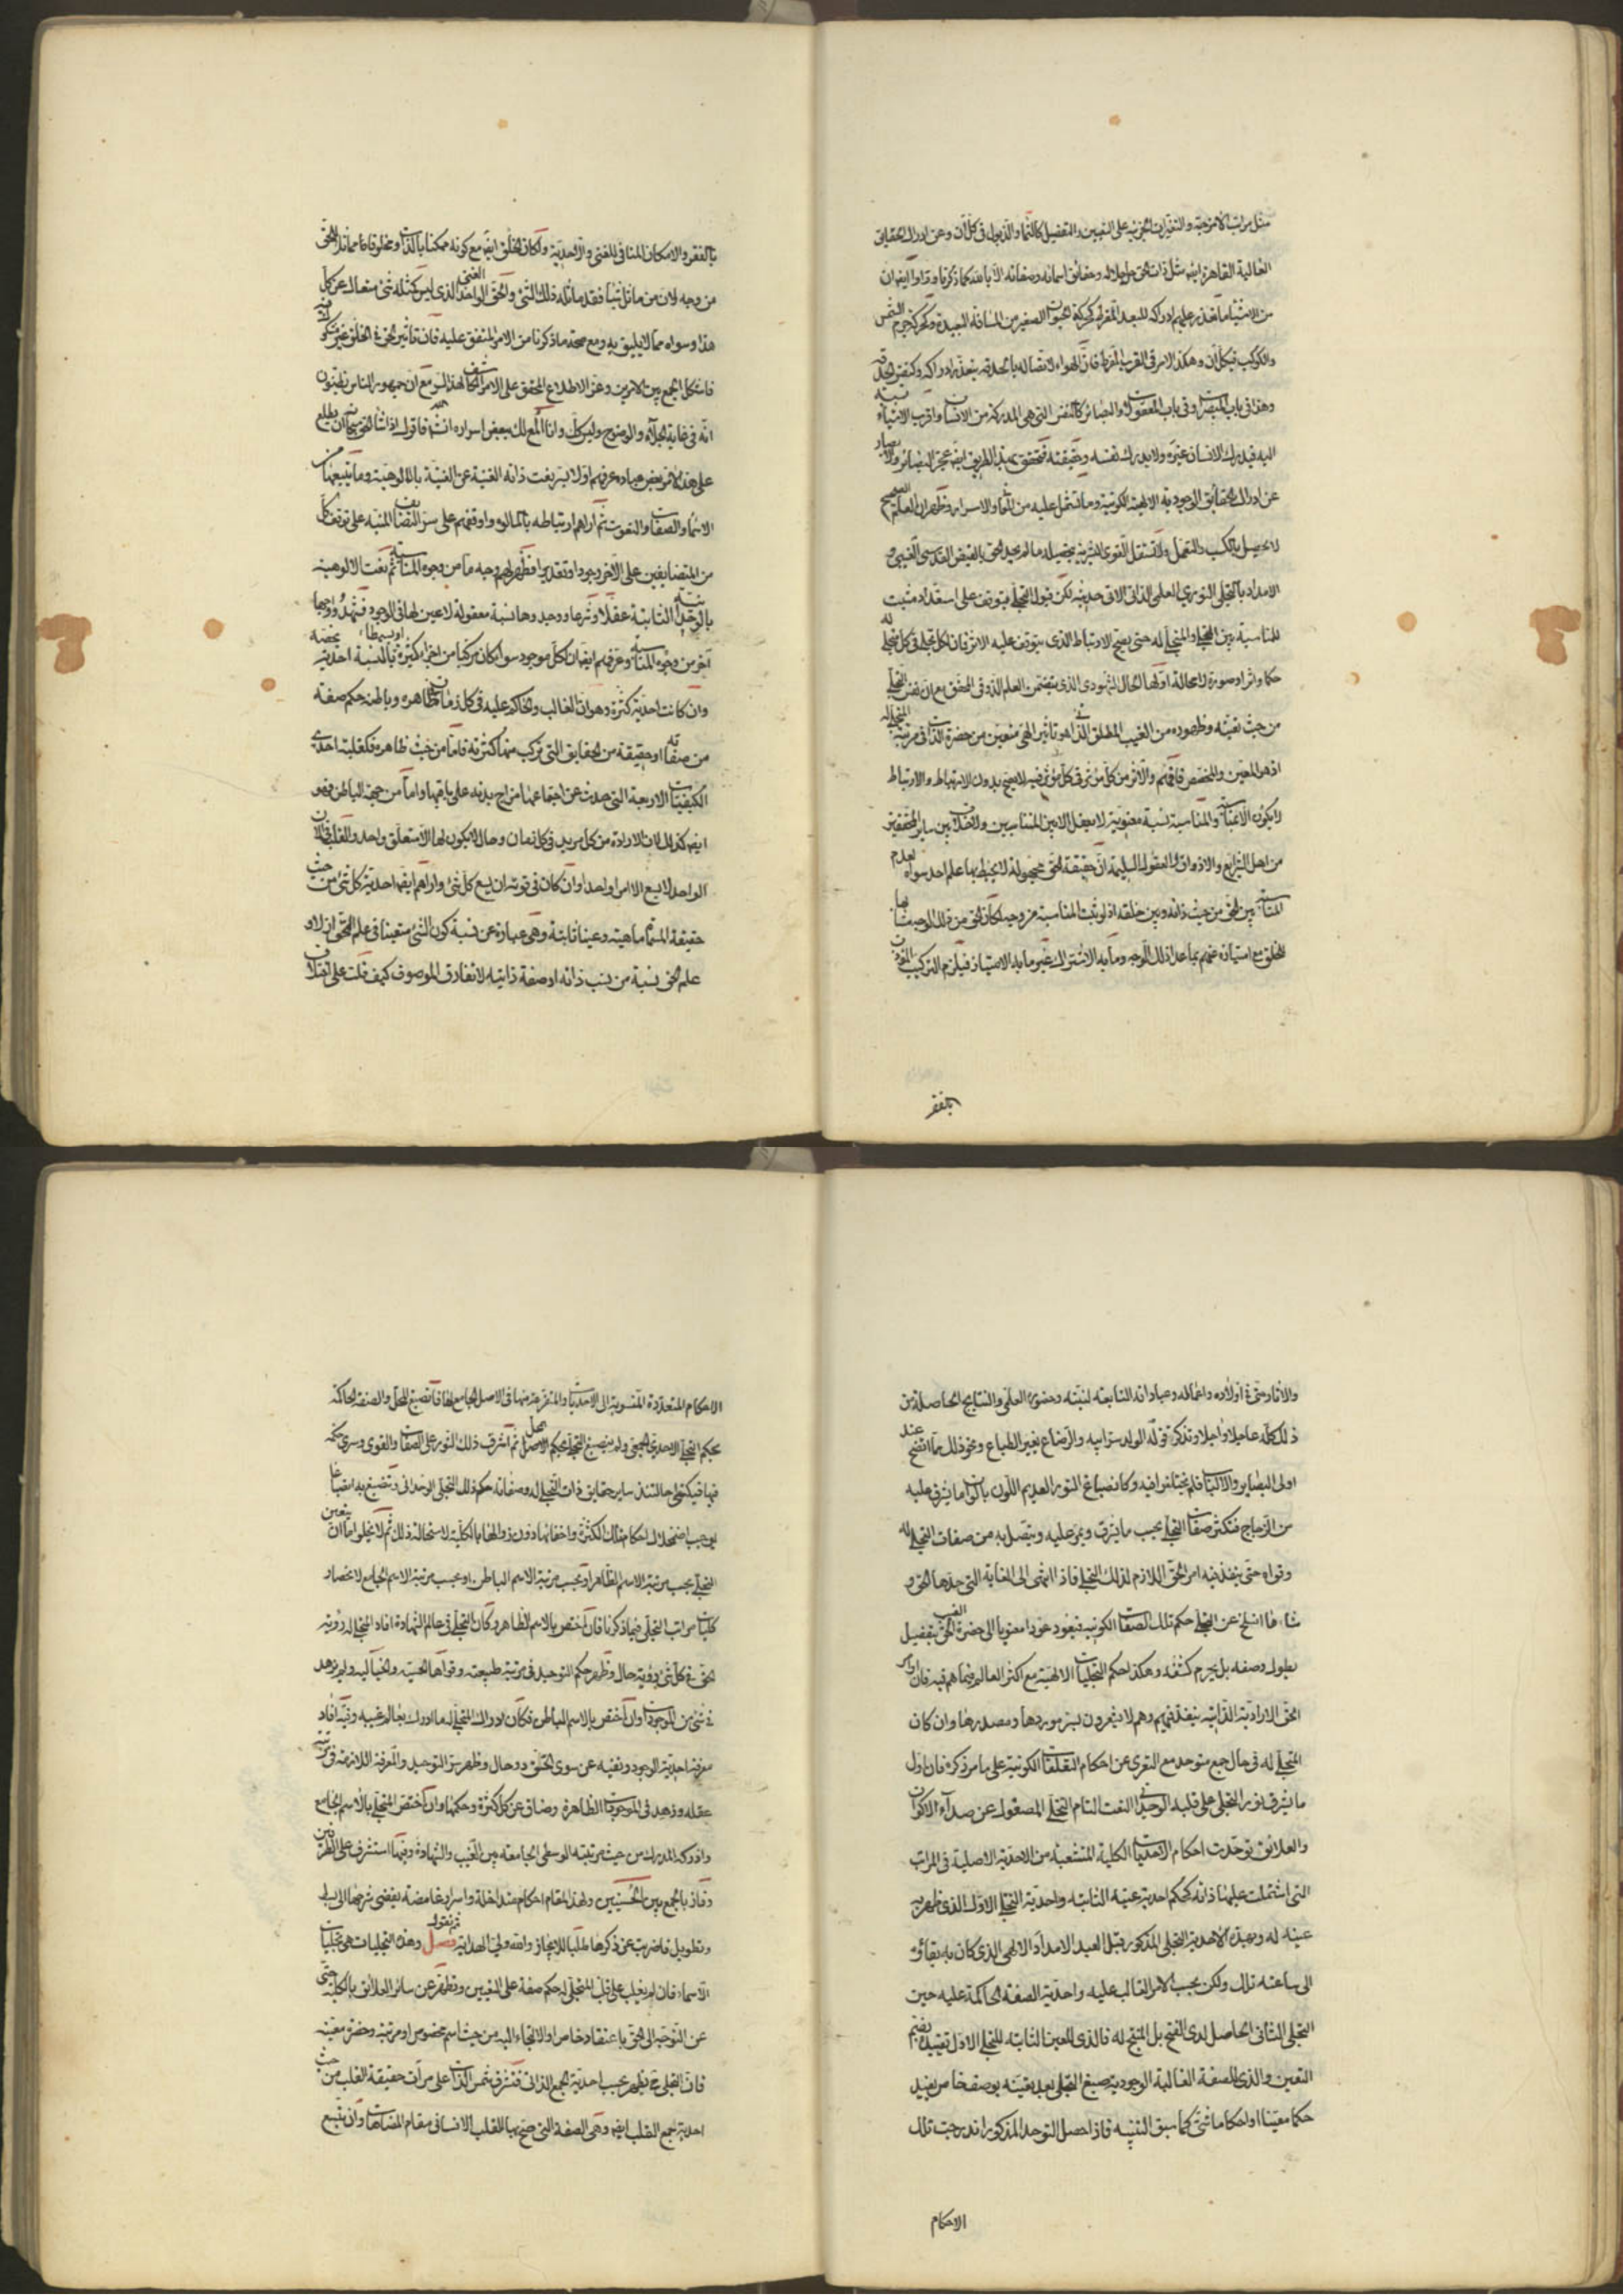 مثل مراتب الامزجة والتغيرات الجزئية على التعيين والتفصيل كالنماء والذبول في كل آن وعن ادراك الحقايق
العالية القاهرة ايضا مثل ذات الحق جل جلاله وحقائق اسمائه وصفاته الا بالله كما ذكرنا وراوا ايضا ان
من الاشياء ما تعذر عليهم ادراكه للبعد المفرط كحركة الحيوان الصغير من المسافة البعيدة وكحركة جرم الشمس
والكوكب في كل آن وهكذا الامر في القرب المفرط فان الهواء لاتصاله بالحدقة يتعذر ادراكه وكنفس الحدقة
وهذا في باب المبصرات وفي باب المعقولات والبصائر كالنفس التي هي المدركة من الانسان واقرب الاشياء نسبة
اليه فيدرك الانسان غيره ولا يدرك نفسه وحقيقته فتحقق بهذا الطريق ايضا عجز البصائر والابصار
عن ادراك الحقايق الوجودية الالهية الكونية وما تشتمل عليه من المعاني والاسرار وظهر ان العلم الصحيح
لا يحصل بالكسب والتعمل ولا تستقل القوى البشرية بتحصيله ما لم يجد الحق بالفيض القدسي الغيبي و
الامداد بالتجلي النوري العلمي الذاتي الاتي حديثه لكن قبول التجلي يتوقف على استعداد مثبت
للمناسبة بين المتجلي والمتجلى له حتى يصح الارتباط الذي يتوقف عليه الاثر فان لكل تجل في كل متجلى له
حكما واثرا وصورة لا محالة اولها الحال الشهودي الذي يتضمن العلم الذوقي المحقق مع ان نفس التجلي
من حيث تعينه وظهوره من الغيب المطلق الذاتي هو تاثير الهي متعين من حضرة الذات في مرتبة المتجلى له
اذ هو المعين والمخصص فافهم والاثر من كل مؤثر في كل مؤثر فيه لا يصح بدون الارتباط والارتباط
لا يكون الا بمناسبة والمناسبة نسبة معنوية لا تعقل الا بين المتناسبين ولا خلاف بين سائر المحققين
من اهل الشرايع والاذواق والعقول السليمة ان حقيقة الحق مجهولة لا يحيط بها علم احد سواه لعدم
المناسبة بين الحق من حيث ذاته وبين خلقه اذ لو ثبتت المناسبة من وجه لكان الحق من ذلك الوجه مشابها
للخلق مع امتيازه عنهم بما عدا ذلك الوجه وما به الاشتراك غير ما به الامتياز فيلزم التركيب المؤذن
بالفقر
بالفقر والامكان المنافي للغنى والاحدية ولكان الخلق ايضا مع كونه ممكنا بالذات ومخلوقا مماثلا للحق
من وجه لان من ماثل شيئا فقد ماثله ذلك الشئ والحق الواحد الغني الذي ليس كمثله شئ متعال عن كل
هذا وسواه مما لا يليق به ومع صحة ما ذكرنا من الامر المتفق عليه فان تاثير الحق في الخلق غير مشكوك فيه
فاشكل الجمع بين الامرين وعز الاطلاع المحقق على الامر الكاشف لهذا السر مع ان جمهور الناس يظنون
انه في غاية الجلاء والوضوح وليس كذلك وانا المع لك ببعض اسراره ان شاء الله فاقول اذا شاء الحق سبحانه ان يطلع
على هذا الامر بعض عباده عرفهم اولا بسر نعت ذاته الغنية عن الغنية بالالوهية وما يتبعها من
الاسماء والصفات والنعوت ثم اراهم ارتباطها بالمالوه واوقفهم على سر التضايف المنبه على توقف كل
من المتضايفين على الآخر وجودا وتقديرا فظهر لهم وجه ما من وجوه المناسبة ثم نعت الالوهية
بالوحدانية الثابتة عقلا وشرعا ووجدوها نسبة معقولة لا عين لها في الوجود فشهدوا وجها
آخر من وجوه المناسبة وعرفهم ايضا ان لكل موجود سواء كان مركبا من اجزاء كثيرة او بسيطا بالنسبة احدية تخصه
وان كانت احدية كثرة وهو ان الغالب والحاكم عليه في كل زمان ظاهره وباطنه حكم صفة
من صفاته او حقيقة من الحقايق التي تركب منها كثرته فاما من حيث ظاهره فلغلبة احدى
الكيفيات الاربعة التي حدث عن اجتماعها مزاج بدنه على باقيها واما من جهة الباطن فهو
ايضا كذلك لان الارادة من كل مريد في كل زمان وحال لا يكون لها الا متعلق واحد والقلب في الآن
الواحد لا يسع الا امرا واحدا وان كان في قوته ان يسع كل شئ واراهم ايضا احدية كل شئ من حيث
حقيقته المسماة ماهية وعينا ثابتة وهي عبارة عن نسبة كون الشئ متعينا في علم الحق ازلا و
علم الحق نسبة من نسب ذاته او صفة ذاتية لا تفارق الموصوف كيف قلت على اختلاف
والآثار حتى في اولاده واعماله وعباداته التابعة لنيته وحضوره العلمي والنتايج الحاصلة من
ذلك كله عاجلا وآجلا وتذكر قوله الولد سر ابيه والرضاع يغير الطباع ونحو ذلك مما اتضح عند
اولي البصاير والالباب فلم يختلفوا فيه وكانصباغ النور العديم اللون بالوان ما يشرق عليه
من الزجاج فتتكثر صفات التجلي بحسب ما يشرق ويمر عليه ويتصل به من صفات المتجلى له
وقواه حتى ينفذ فيه امر الحق اللازم لذلك التجلي فاذا انتهى الى الغاية التي حدها الحق و
شاءها انسلخ عن التجلي حكم تلك الصفات الكونية فيعود عودا معنويا الى حضرة الغيب الحق بتفصيل
يطول وصفه بل يحرم كشفه وهكذا حكم التجليات الالهية مع اكثر العالم فيما هم فيه فان اوامر
الحق الارادية الذاتية ينفذ فيهم وهم لا يشعرون بسر موردها ومصدرها وان كان
المتجلى له في حال جمع متوحد مع التعري عن احكام التعلقات الكونية على ما مر ذكره فان اول
ما يشرق نور التجلي على قلبه الوحداني النعت التام التجلي المصقول عن صداء الاكوان
والعلائق توحدت احكام الاحديات الكلية المتشعبة من الاحدية الاصلية في المراتب
التي اشتملت عليها ذاته كحكم احدية عينه الثابتة واحدية التجلي الاول الذي ظهر به
عينه له وبهذه الاحدية التجلي المذكور قبل العبد الامداد الالهي الذي كان به بقاؤه
الى ساعته تلك ولكن بحسب الامر الغالب عليه واحدية الصفة الحاكمة عليه حين
التجلي الثاني الحاصل لدى الفتح بل المنتج له فالذي للعين الثابتة للتجلي الاول تقييده بضم
التعين والذي للصفة الغالبة الوجودية صبغ التجلي بعد تعينه بوصف خاص يفيد
حكما معينا او احكاما شتى كما سبق التنبيه فاذا حصل التوحد المذكور اندرجت تلك
الاحكام
الاحكام المتعددة المنسوبة الى الاحديات والمتفرعة منها في الاصل الجامع لها فانصبغ المحل والصفة الحاكمة
بحكم التجلي الاحدي الجمعي ولم ينصبغ التجلي بحكم المحل ثم اشرق ذلك النور على الصفات والقوى وسرى حكمه
فيها فتكتسي حالتئذ ساير حقايق ذات المتجلى له وصفاته حكم ذلك التجلي الوحداني وتنصبغ به انصباغا
يوجب اضمحلال احكام تلك الكثرة واخفائها دون زوالها بالكلية لاستحالة ذلك ثم لا يخلو اما ان يتعين
التجلي بحسب مرتبة الاسم الظاهر او بحسب مرتبة الاسم الباطن او بحسب مرتبة الاسم الجامع لانحصار
كليات مراتب التجلي فيما ذكرنا فان اختص بالاسم الظاهر وكان التجلي في عالم الشهادة افاد المتجلى له رؤية
الحق في كل شئ رؤية حال وظهر حكم التوحيد في مرتبة طبيعته وقواها الحسية والخيالية ولم يزهد
في شئ من الموجودات وان اختص بالاسم الباطن وكان ادراك المتجلى له ما ادرك بعالم غيبه وفيه افاد
معرفة احدية الوجود ونفيه عن سوى الحق ذوق وحال وظهر سر التوحيد والمعرفة اللازمة في مرتبة
عقله وزهد في الموجودات الظاهرة وضاق عن كل كثرة وحكمها وان اختص المتجلي بالاسم الجامع
وادركه المدرك من حيث مرتبته الوسطى الجامعة بين الغيب والشهادة وفيهما استشرف على الطرفين
وفاز بالجمع بين الحسنيين ولهذا المقام احكام متداخلة واسرار غامضة يفضي شرحها الى بسط
وتطويل فاضربت عن ذكرها طلبا للايجاز والله ولي الهداية فصل ثم نقول وهذه التجليات هي تجليات
الاسماء فان لم يغلب على قلب المتجلى له حكم صفة على التعيين وتطهر عن سائر العلائق بالكلية حتى
عن التوجه الى الحق باعتقاد خاص او الالتجاء اليه من حيث اسم مخصوص او مرتبة وحضرة معينة
فان التجلي ح يظهر بحسب احدية الجمع الذاتي فتشرق شمس الذات على مرآة حقيقة القلب من حيث
احدية جمع القلب ايضا وهي الصفة التي صح بها للقلب الانساني مقام المضاهاة وان تتسع